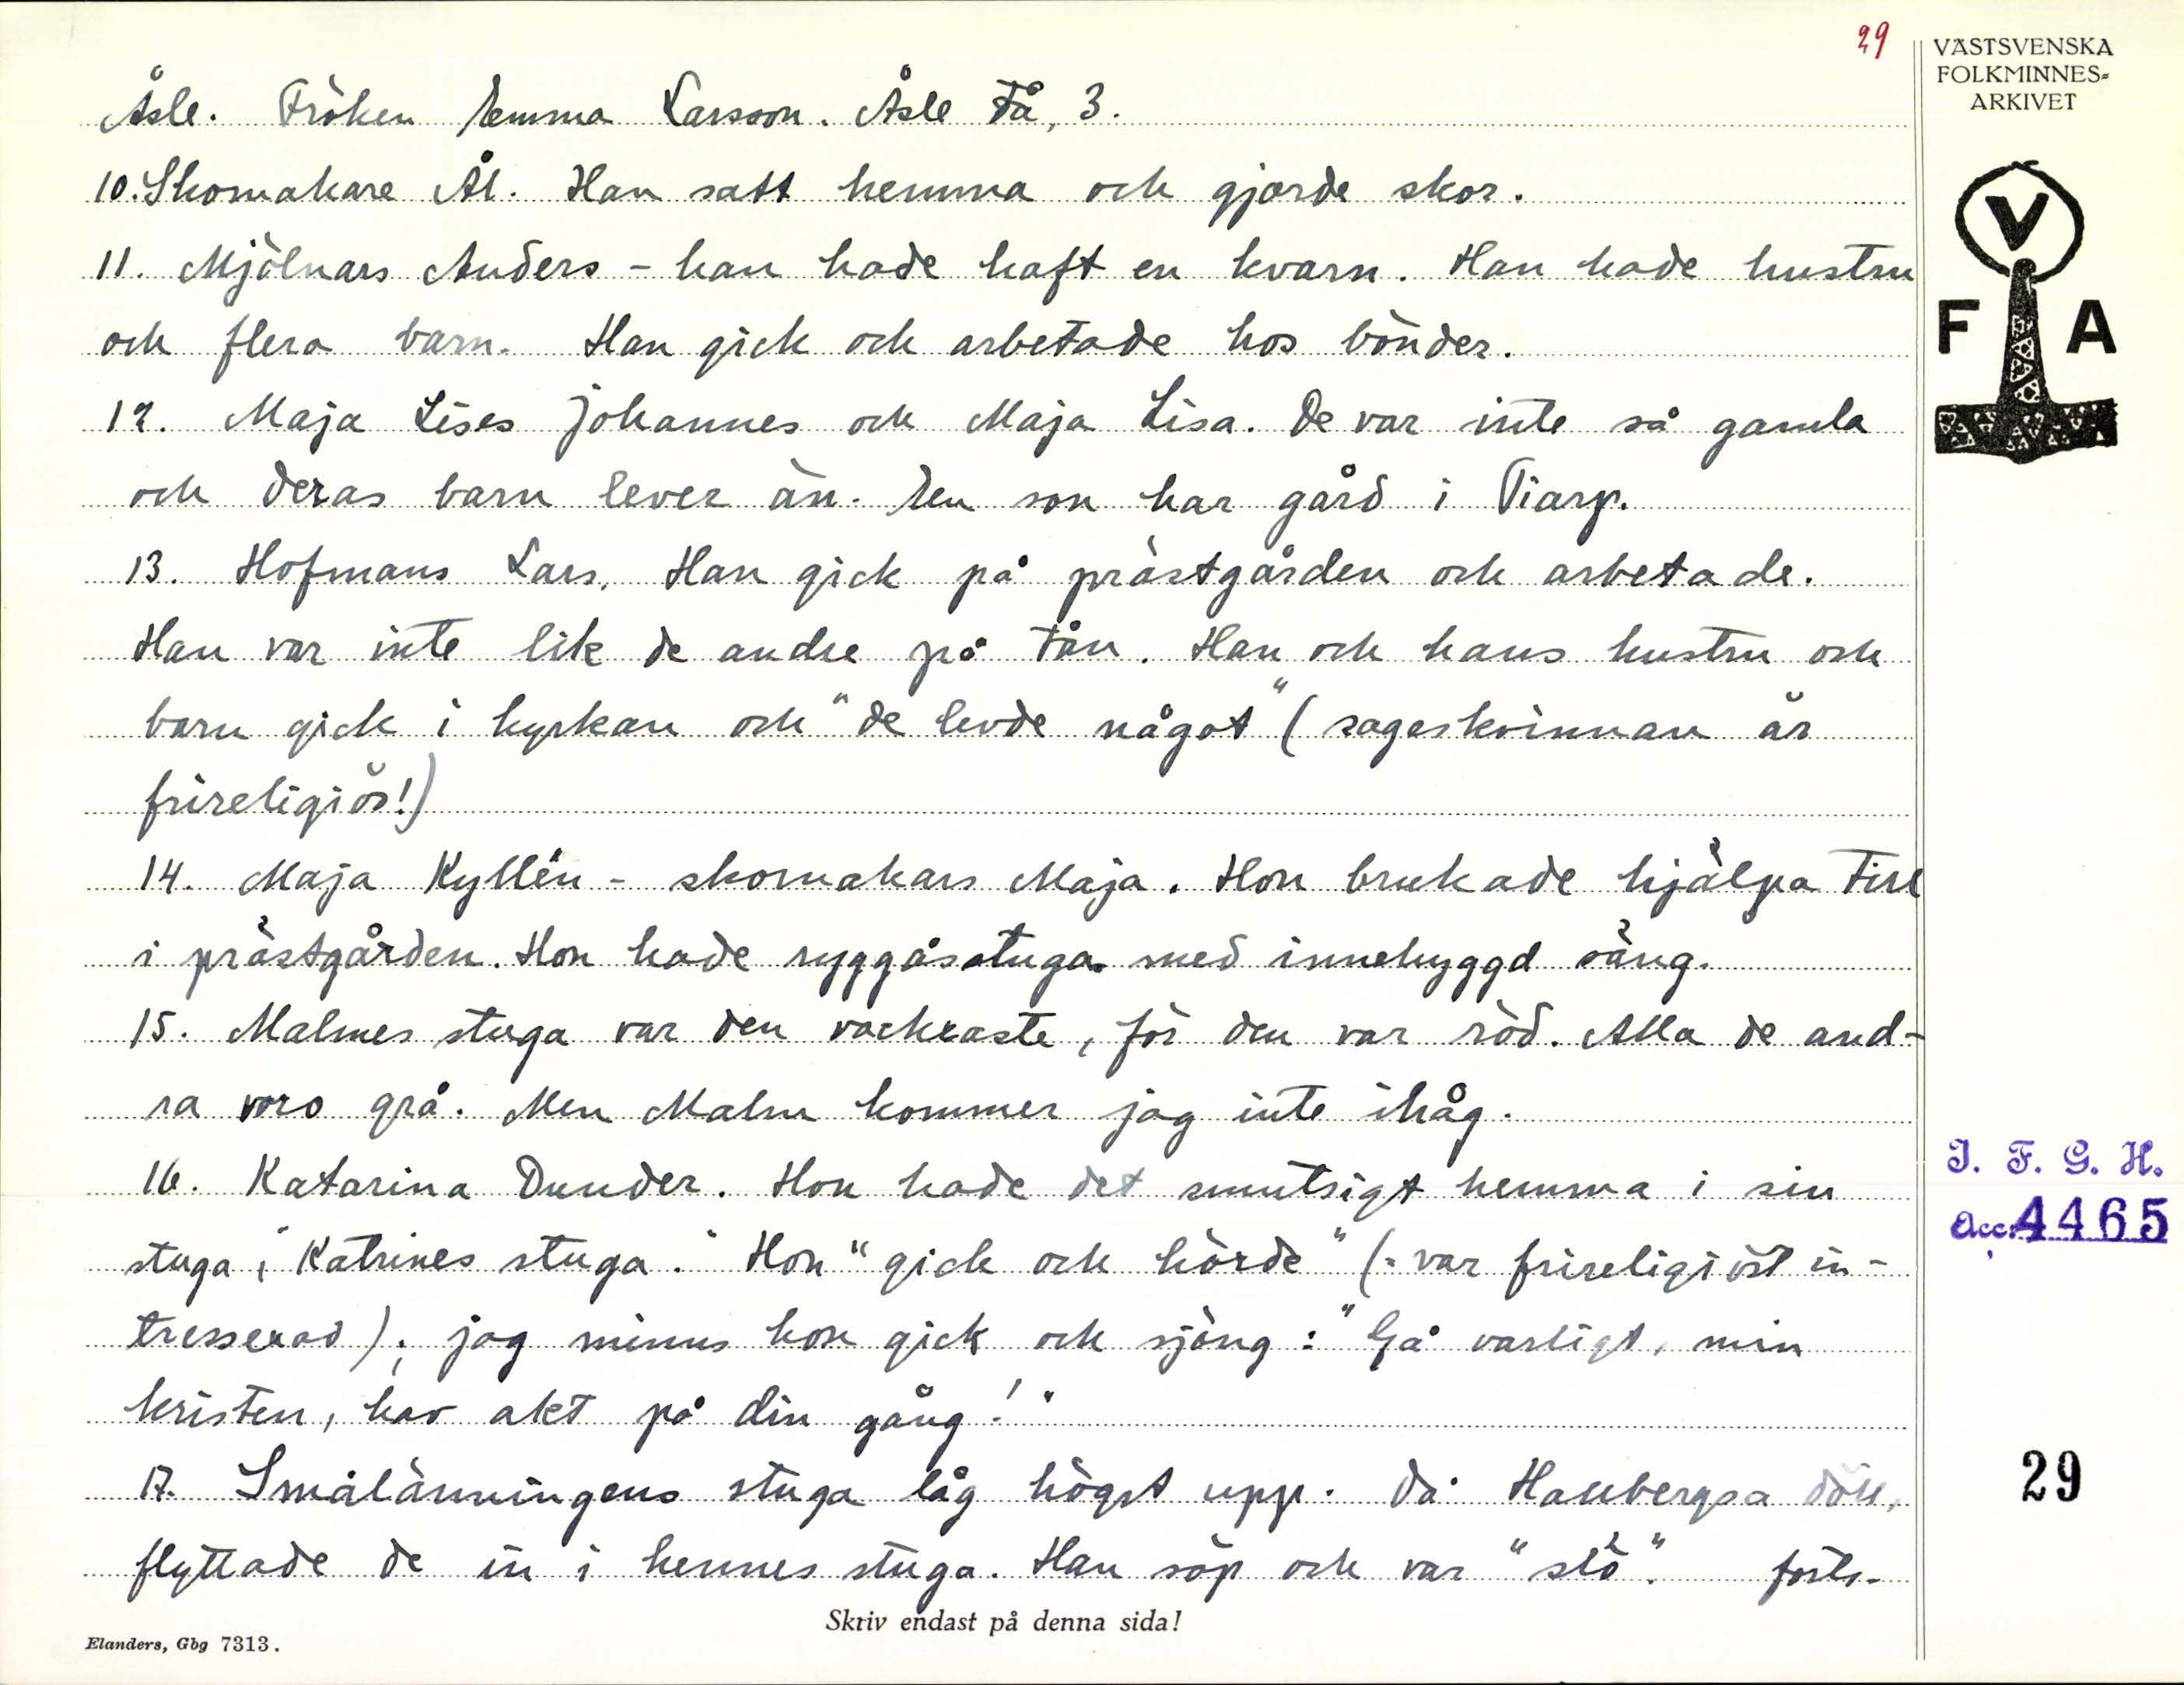 29
VÄSTSVENSKA
FOLKMINNES-
ARKIVET
Åsle. Fröken Emma Larsson. Åsle Tå, 3.
10. Skomakare Ål. Han satt hemma och gjorde skor.
11. Mjölnars Anders - han hade haft en kvarn. Han hade hustru
och flera barn. Han gick och arbetade hos bönder.
12. Maja Lises Johannes och Maja Lisa. De var inte så gamla
och deras barn lever än. En son har gård i Tiarp.
13. Hofmans Lars. Han gick på prästgården och arbetade.
Han var inte lik de andre på tån. Han och hans hustru och
barn gick i kyrkan och "de levde något" (sageskvinnan är
frireligiös!)
14. Maja Kyllén - skomakars Maja. Hon brukade hjälpa till
i prästgården. Hon hade ryggåsstuga med innebyggd säng.
15. Malmes stuga var den vackraste, för den var röd. Alla de and-
ra voro grå. Men Malm kommer jag inte ihåg.
16. Katarina Dunder. Hon hade det smutsigt hemma i sin
stuga, "Katrines stuga." Hon "gick och hörde" (= var frireligiöst in-
tresserad); jag minns hon gick och sjöng: "Gå varligt, min
kristen, hav akt på din gång!"
17. Smålänningens stuga låg högst upp. Då Hallbergsa dött,
flyttade de in i hennes stuga. Han söp och var "slö". forts.
V
F A
I. F. G. H.
Acc. 4465
29
Skriv endast på denna sida!
Elanders, Gbg 7313.